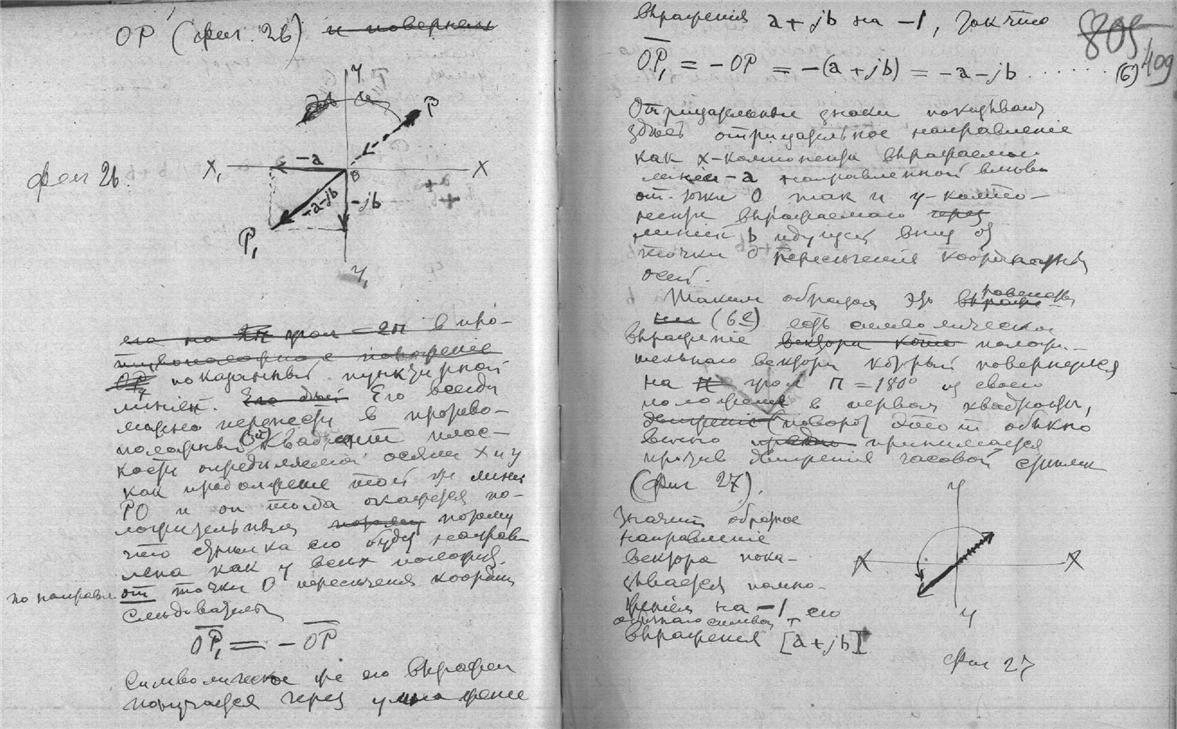 OP (фиг. 26) и повернем
Y
P
X₁ -a O X
фиг 26.
-a-jb -jb
P₁
Y₁
его на угол = 2π в про-
тивоположное
OP₁ показанный пунктирной
линией. Его всегда
можно перенести в противо-
положный квадрант плос-
кости определяемой осями X и Y
как продолжение той же линии
PO и он тогда окажется по-
ложительным потому
что стрелка его будет направ
лена как у всех
по направл. от точки O пересечения координ
Следовательно
OP₁ = - OP
Символическое же его выражен
получается через умножение
выражения a+jb на -1, так что
OP₁ = -OP = -(a+jb) = -a-jb . . . . . . (6)
805
409
Отрицательные знаки показывают
здесь отрицательное направление
как x-компонента выражаемой
линией -a направленной влево
от точки O так и y-компо-
ненты выражаемого через
линии b идущей вниз от
точки O пересечения координатных
осей.
Таким образом это равенство
(6) есть символическое
выражение вектора положи-
тельного вектора который повернулся
на угол π = 180° из своего
положения в первом квадранте,
движение (поворот) этот обыкно
венно принимается
против движения часовой стрелки
(Фиг 27).
Значит обратное
направление
вектора пока-
зывается помно-
жением на -1 его
обычного символ.
выражения [a+jb]
Y
X X
Y
Фиг 27